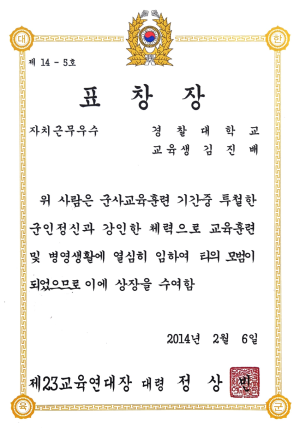 제 14 - 5호
표 창 장
자치근무우수 경 찰 대 학 교
교 육 생 김 진 배
위 사람은 군사교육훈련 기간중 특철한
군인정신과 강인한 체력으로 교육훈련
및 병영생활에 열심히 임하여 타의 모범이
되었으므로 이에 상장을 수여함
2014년 2월 6일
제23교육연대장 대령 정 상 빈
대 한
육 군